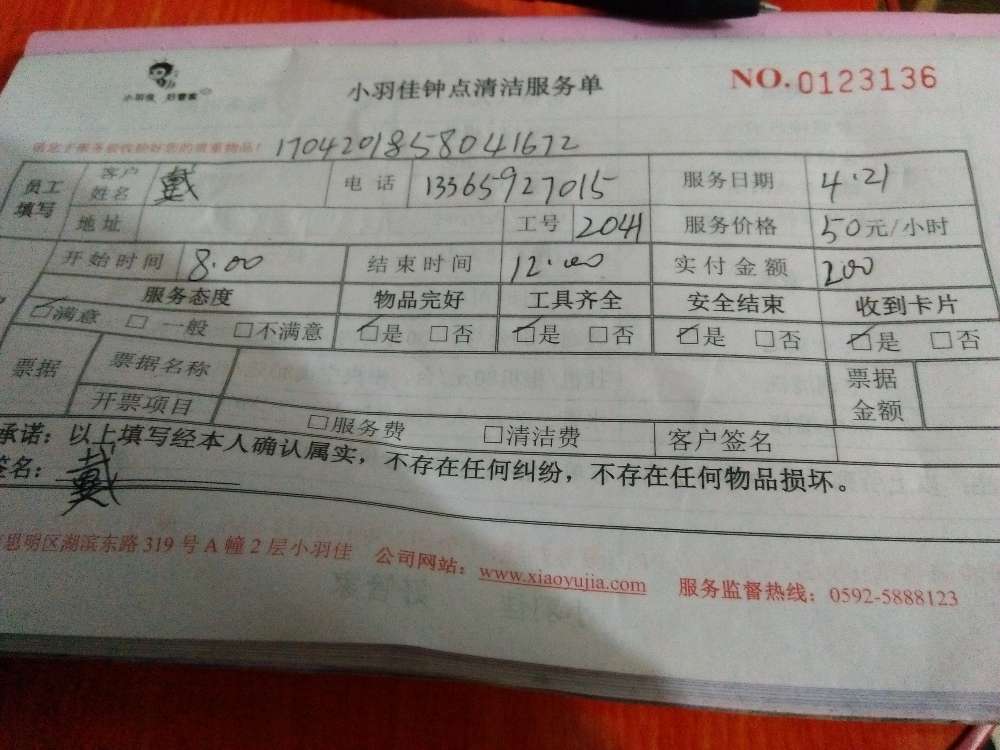 小羽佳 好管家
小羽佳钟点清洁服务单
NO.0123136
请您于服务前收拾好您的贵重物品!
17042018558041672
员工填写 客户姓名 戴 电话 13365927015 服务日期 4.21
地址 工号 2041 服务价格 50元/小时
开始时间 8.00 结束时间 12.00 实付金额 200
服务态度 物品完好 工具齐全 安全结束 收到卡片
☑满意 □一般 □不满意 ☑是 □否 ☑是 □否 ☑是 □否 ☑是 □否
票据 票据名称 票据金额
开票项目 □服务费 □清洁费 客户签名
承诺：以上填写经本人确认属实，不存在任何纠纷，不存在任何物品损坏。
签名：戴
思明区湖滨东路319号A幢2层小羽佳 公司网站：www.xiaoyujia.com 服务监督热线：0592-5888123